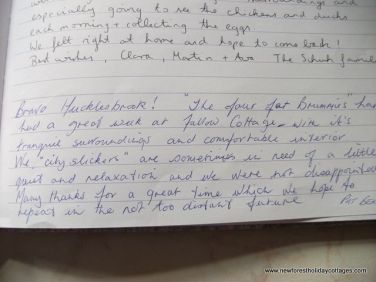 especially going to see the chickens and ducks
each morning + collecting the eggs.
We felt right at home and hope to come back!
Best wishes, Clara, Martin + The family
Bravo Hucklesbrook! "The four fat Brummies" have
had a great week at Fallow Cottage with it's
tranquil surroundings and comfortable interior
We "city slickers" are sometimes in need of a little
quiet and relaxation and we were not disappointed
Many thanks for a great time which we hope to
repeat in the not too distant future
www.newforestholidaycottages.com